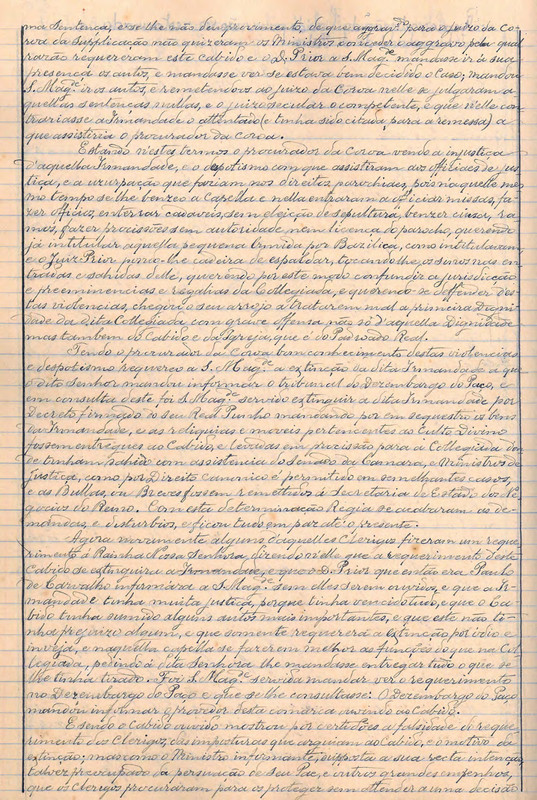 ma sentença, e se lhe não deu provimento, de que aggravou para o juizo da Co-
roa da Supplicação não quizeram os Ministros conceder o aggravo pela qual
razão requereram este cabido e o D. Prior a S. Magde mandasse ir á sua
presença os autos, e mandasse ver se estava bem decidido o caso; mandou
S. Magde ir os autos, e remetendo-os ao juizo da Coroa nelle se julgaram a-
quellas sentenças nullas, e o juizo secular o competente, e que n'elle con-
trariasse a Irmandade o attentado (e tinha sido citada para a remessa) a
que assistiria o procurador da Coroa.
Estando n'estes termos o procurador da Coroa vendo a injustiça
d'aquella Irmandade, e o despotismo com que assistiram aos officiaes de jus-
tiça, e a usurpação que faziam nos direitos parochiaes, pois naquelle mes-
mo tempo se lhe benzeo a Capella e nella entraram a officiar missas, fa-
zer officios, enterrar cadaveis, sem eleição de sepultura, benzer cinza, ra-
mos, fazer procissões sem autoridade nem licença do parocho, querendo
já intitular aquella pequena Ermida por Bazilica, como intitularam
e o Juiz Prior pôrão-lhe cadeira de espaldar, tocando-lhe os sinos nas en-
tradas e sahidas delle, querendo por este modo confundir a jurisdicção
e preeminencias e regalias da Collegiada, e querendo-se defender des-
tas violencias, chegou o seu arrojo a tratarem mal a primeira Digni-
dade da dita Collegiada com grave offensa não só d'aquella Dignidade
mas tambem do Cabido e da Igreja, que é do Padroado Real.
Tendo o procurador da Coroa bom conhecimento destas violencias
e despotismo requereo a S. Magde a extincção da dita Irmandade a que
o dito Senhor mandou informar o tribunal do Dezembargo do Paço, e
em consulta deste foi S. Magde servido extinguir a dita Irmandade por
decreto firmado do seu Real Punho mandando pôr em sequestro os bens
da Irmandade, e as reliquias e moveis pertencentes ao Culto Divino
fossem entregues ao Cabido, e levadas em procissão para a Collegiada don-
de tinham sahido com assistencia do Senado da Camara, e Ministros de
Justiça, como por Direito canonico é permitido em semelhantes casos
e as Bullas, ou Breves fossem remettidos á Secretaria de Estado dos Ne-
gocios do Reino. Com esta determinação Regia se acabaram as de-
mandas e disturbios, e ficou tudo em paz até o presente.
Agora novamente alguns daquelles Clerigos fizeram um reque-
rimento á Rainha Nossa Senhora, dizendo n'elle que a requerimento deste
Cabido se extinguira a Irmandade, e que o D. Prior que então era Paulo
de Carvalho informára a S. Magde sem elles serem ouvidos, e que a Ir-
mandade tinha muita justiça, porque tinha vencido tudo, e que o Ca-
bido tinha sumido alguns autos mais importantes, e que este não ti-
nha prejuizo algum, e que somente requerera a extincção por odio e
inveja, e naquella capella se fazerem melhor as funções do que na Col-
legiada, pedindo á dita Senhora lhe mandasse entregar tudo o que se
lhe tinha tirado. Foi S. Magde servida mandar ver o requerimento
no Dezembargo do Paço e que se lhe consultasse: O Dezembargo do Paço
mandou informar o provedor desta comarca ouvindo ao Cabido.
E sendo o Cabido ouvido mostrou por certidões a falsidade do reque-
rimento dos Clerigos, das imposturas que arguiam ao Cabido, e o motivo da
extincção; mas como o Ministro informante, supposta a sua recta intenção,
talvez preocupado da persuasão de seu Pae, e outros grandes empenhos,
que os clerigos procuraram para os proteger sem attender a uma decisão